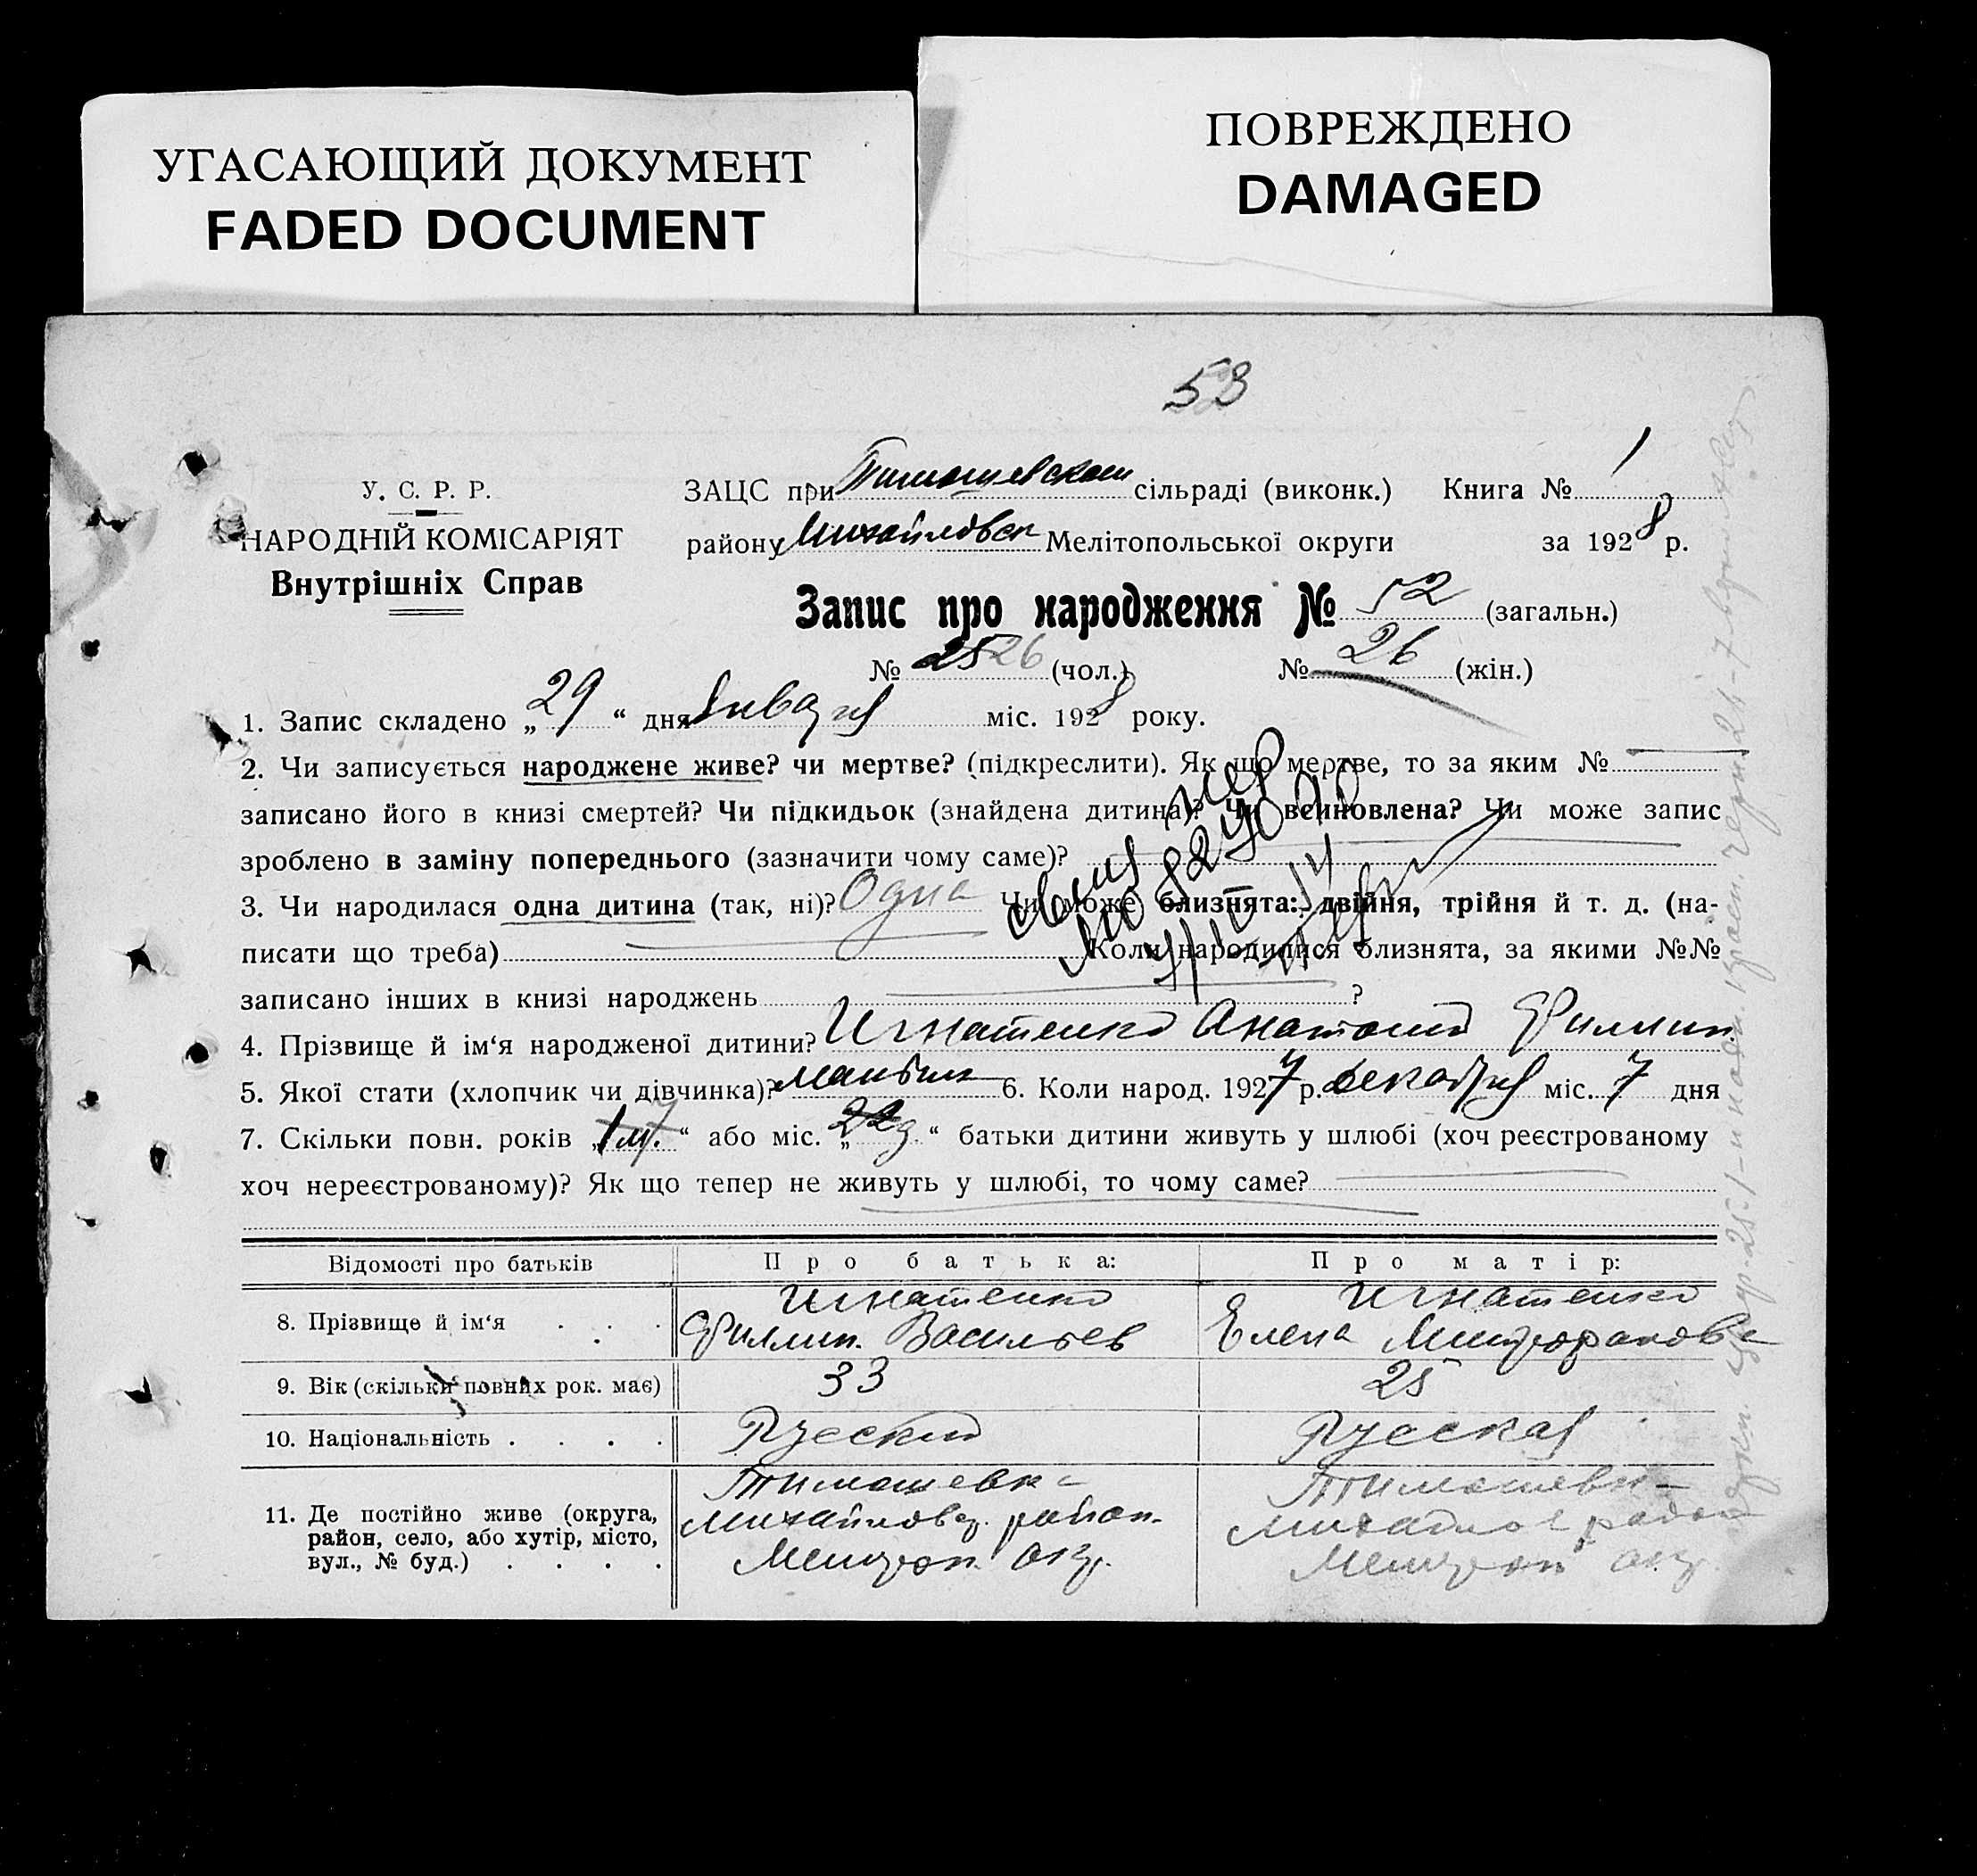 УГАСАЮЩИЙ ДОКУМЕНТ
FADED DOCUMENT
ПОВРЕЖДЕНО
DAMAGED
53
У. С. Р. Р.
НАРОДНІЙ КОМІСАРІЯТ
Внутрішніх Справ
ЗАЦС при Тимошевском сільраді (виконк.) Книга № 1
району Михайловск Мелітопольської округи за 1928 р.
Запис про народження № 52 (загальн.)
№ 25 26 (чол.) № 26 (жін.)
1. Запис складено „29“ дня Января міс. 1928 року.
2. Чи записується народжене живе? чи мертве? (підкреслити). Як що мертве, то за яким №
записано його в книзі смертей? Чи підкидьок (знайдена дитина)? Чи всиновлена? Чи може запис
зроблено в заміну попереднього (зазначити чому саме)?
3. Чи народилася одна дитина (так, ні)? Одна Чи може близнята: двійня, трійня й т. д. (на-
писати що треба) Коли народилися близнята, за якими №№
записано інших в книзі народжень ?
4. Прізвище й ім‘я народженої дитини? Игнатенко Анатолий Филлип.
5. Якої стати (хлопчик чи дівчинка)? 6. Коли народ. 1927 р. Декабря міс. 7 дня
7. Скільки повн. років „ “ або міс. „ “ батьки дитини живуть у шлюбі (хоч реєстрованому
хоч нереєстрованому)? Як що тепер не живуть у шлюбі, то чому саме?
Відомості про батьків Про батька: Про матір:
8. Прізвище й ім‘я . . . Игнатенко Филлип. Васильев Игнатенко Елена Митрофановн
9. Вік (скільки повних рок. має) 33 25
10. Національність . . . . Русский Русская
11. Де постійно живе (округа, район, село, або хутір, місто, вул., № буд.) . . . . Тимошевк- район. Мелитоп. окр. Тимошевк- район Мелитоп окр.